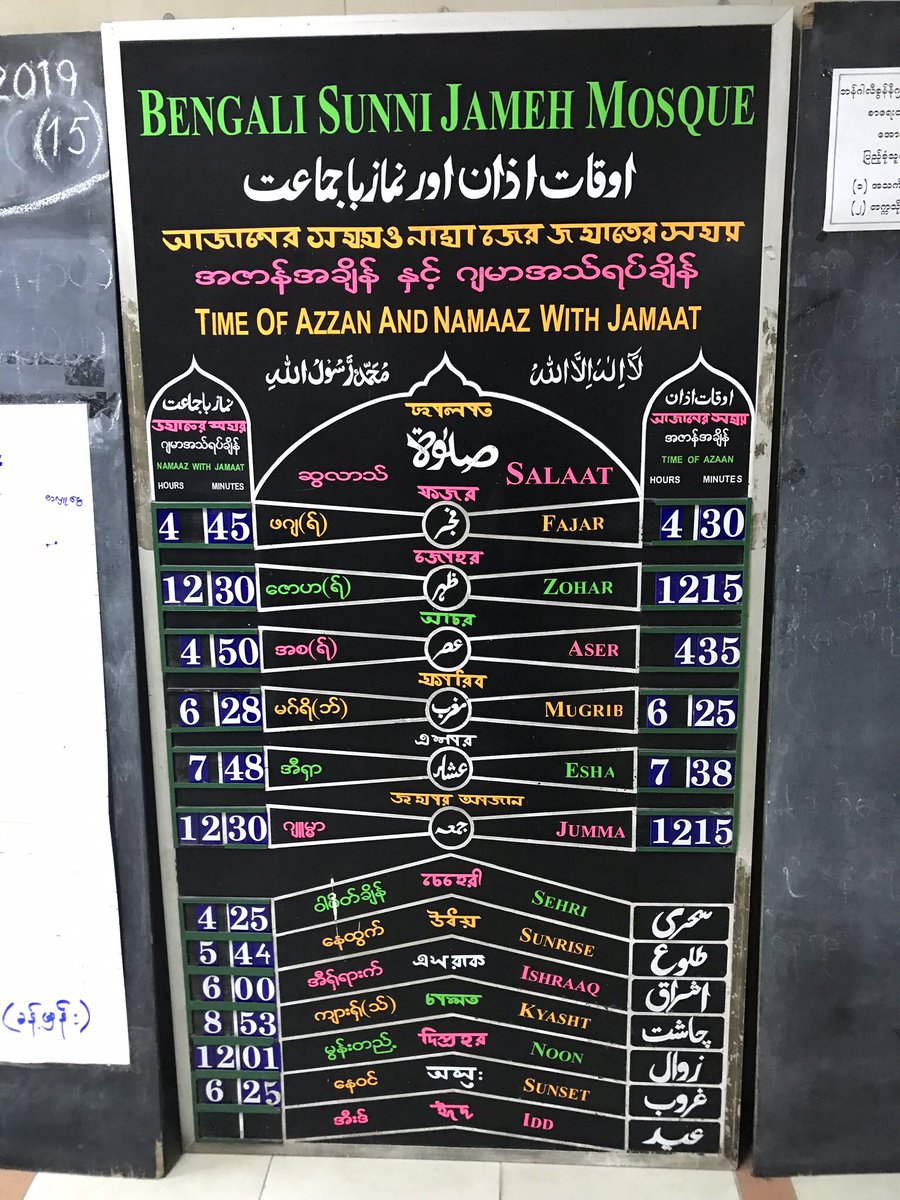 2019
(15)
BENGALI SUNNI JAMEH MOSQUE
اوقات اذان اور نماز باجماعت
আজানের সময়ও নামা জের জমাতের সময়
အဇာန်အချိန် နှင့် ဂျမာအသ်ရပ်ချိန်
TIME OF AZZAN AND NAMAAZ WITH JAMAAT
مُحَمَّدٌ رَّسُوْلُ اللهِ
لَآ اِلٰهَ اِلَّا اللهُ
نماز باجماعت
ဂျမာအသ်ရပ်ချိန်
NAMAAZ WITH JAMAAT
HOURS MINUTES
صلوٰة
ဆွလာသ်
SALAAT
اوقات اذان
আজানের সময়
အဇာန်အချိန်
TIME OF AZAAN
HOURS MINUTES
ফাজর
4 45 ဖဂျ(ရ်) فجر FAJAR 4 30
জোহর
12 30 ဇောဟ(ရ်) ظہر ZOHAR 12 15
আচর
4 50 အစ(ရ်) عصر ASER 4 35
6 28 မဂ်ရိ(ဘ်) مغرب MUGRIB 6 25
7 48 အီရှာ عشاء ESHA 7 38
জুমার আজান
12 30 ဂျူမ္မာ جمعہ JUMMA 12 15
4 25 ဝါစိတ်ချိန် চেহেরী SEHRI سحری
5 44 နေထွက် উদয় SUNRISE طلوع
6 00 အီရှ်ရားက် এশরাক ISHRAAQ اشراق
8 53 ကျားရှ်(သ်) চাশত KYASHT چاشت
12 01 မွန်းတည့် দিপ্রহর NOON زوال
6 25 နေဝင် অস্ত SUNSET غروب
အီးဒ် ঈদ IDD عید